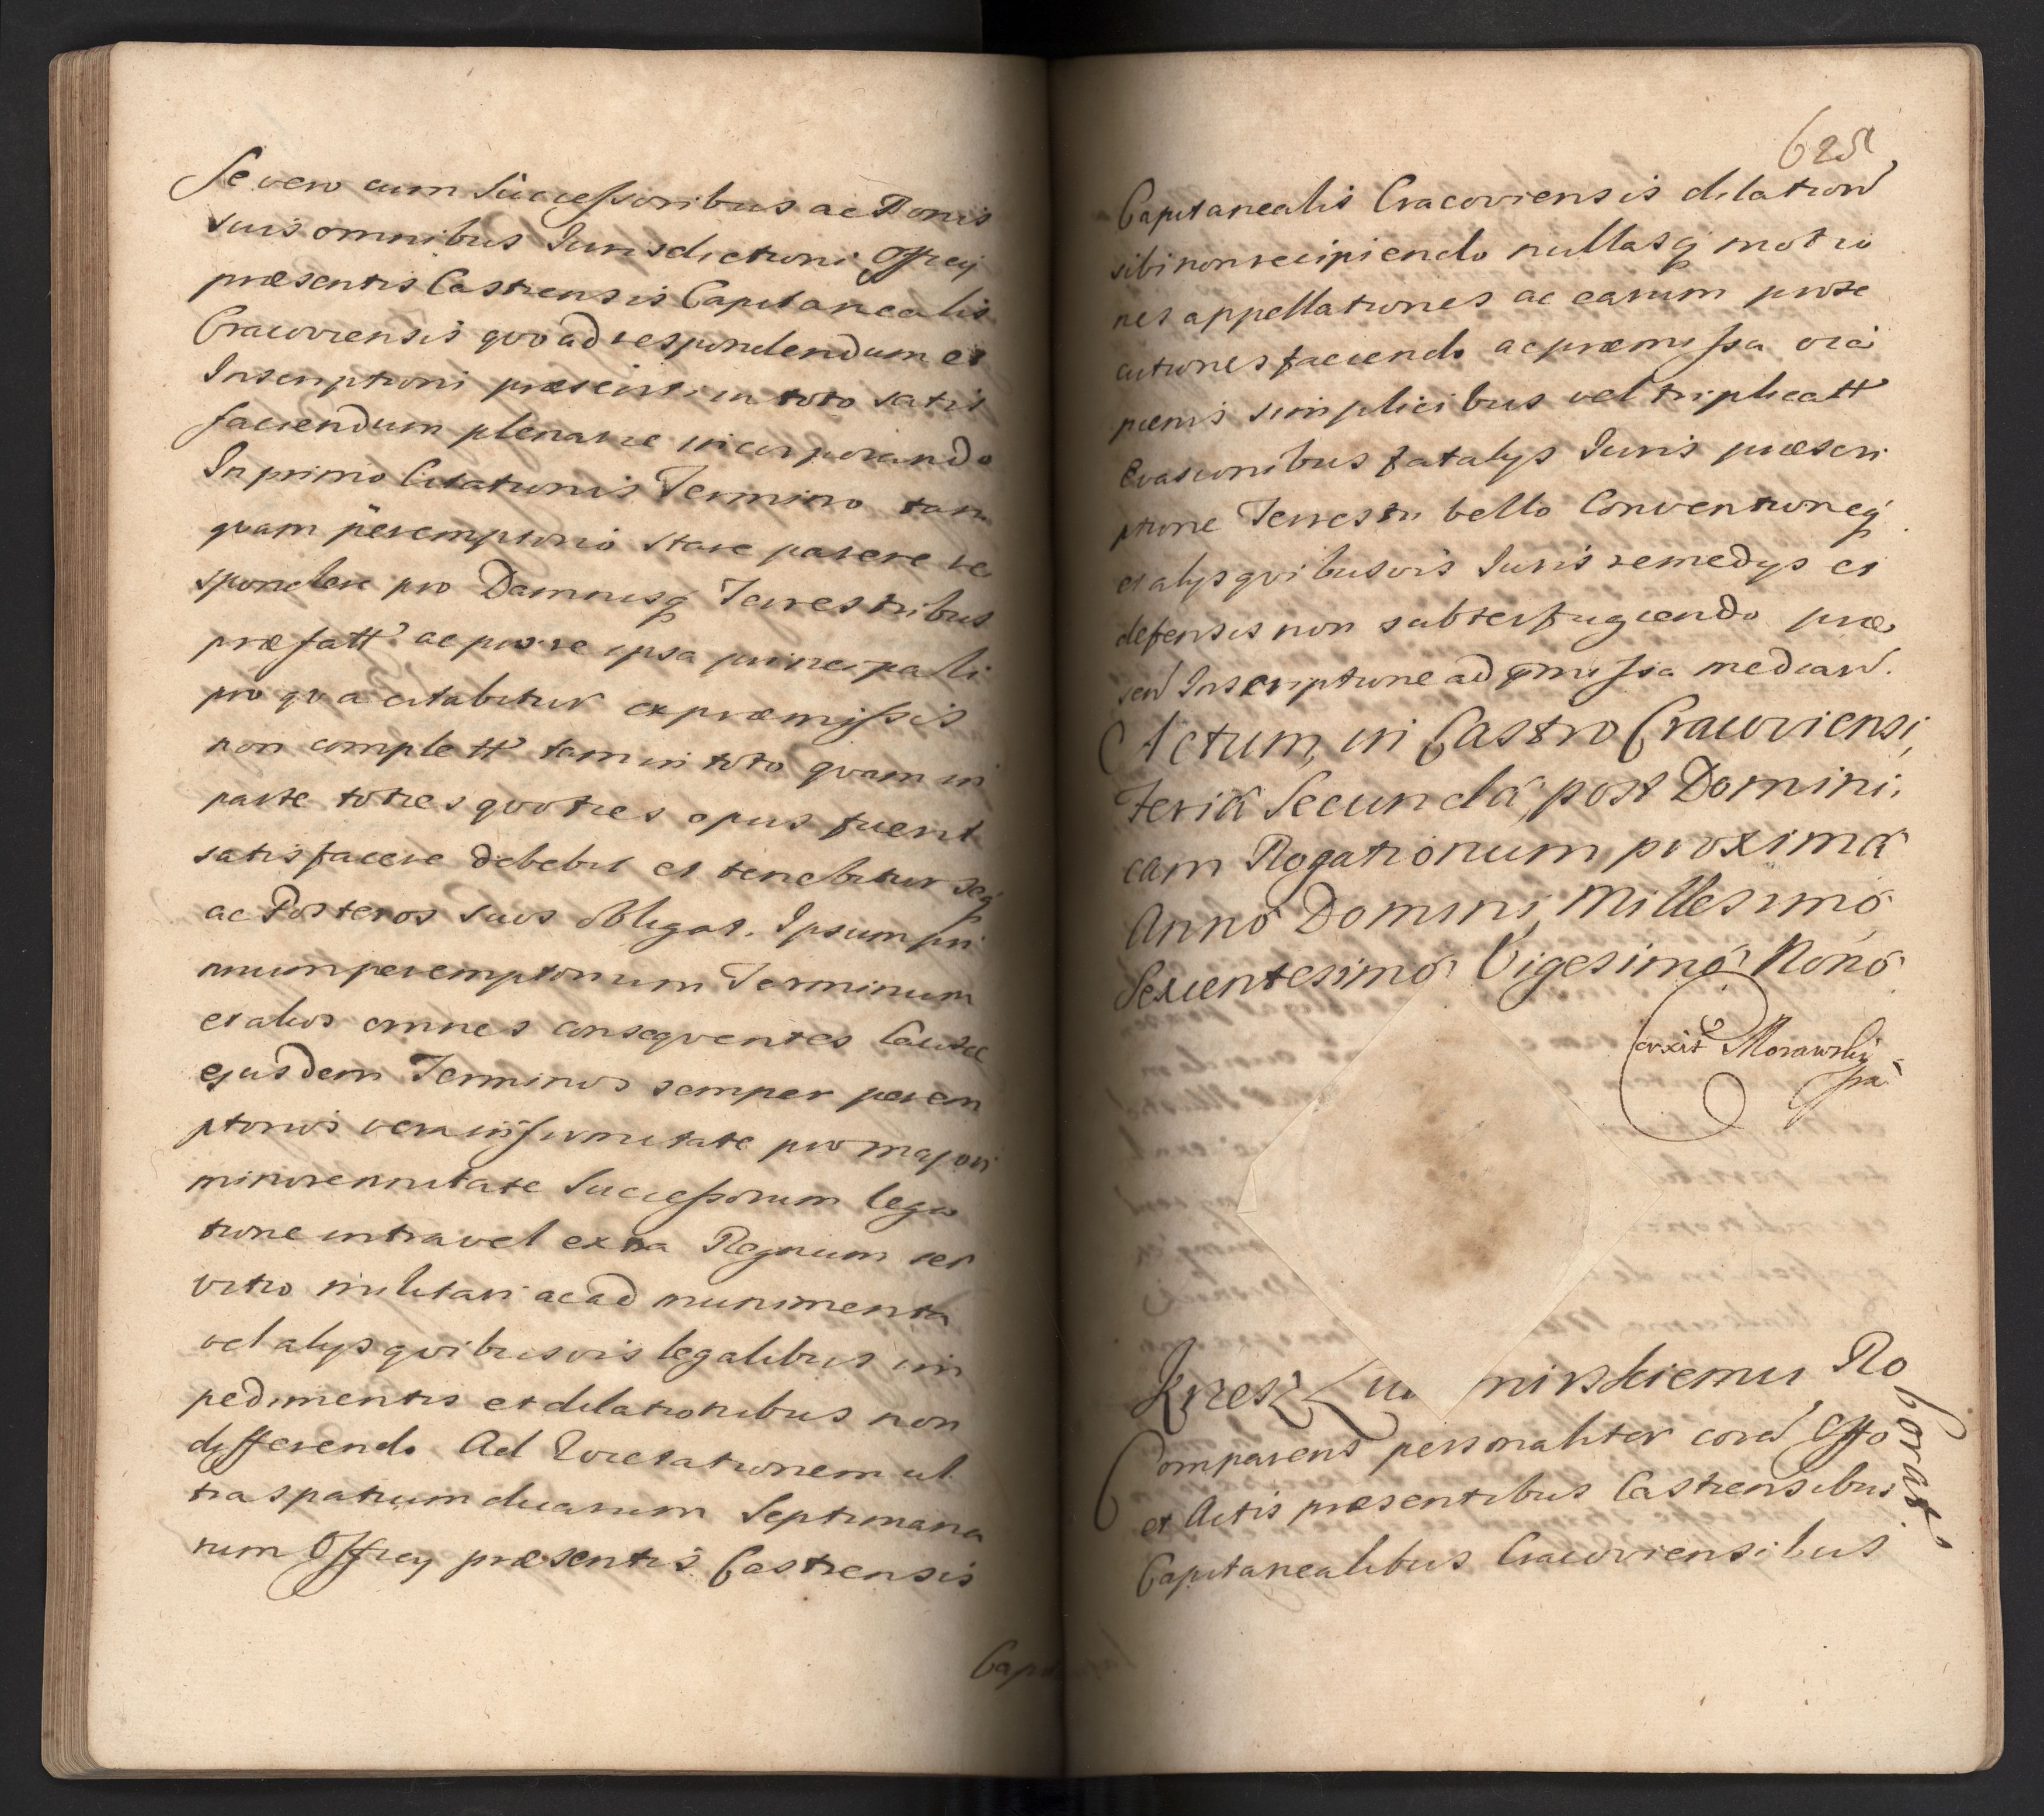 Se vero cum Successoribus ac Bonis
suis omnibus Iurisdictioni Officij
præsentis Castrensis Capitanealis
Cracoviensis qvo ad respondendum et
Inscriptioni præsenti in toto satis
faciendum plenarie incorporando
In primo Citationis Termino tan
qvam peremptorio stare parere re
spondere pro Damnisq Terrestribus
præfatt ac pro re ipsa principali
pro qva citabitur ex præmissis
non complett tam in toto qvam in
parte toties qvoties opus fuerit
satisfacere debebit et tenebitur seq
ac Posteros suos obligat. Ipsum pri
mum peremptorium Terminum
et alios omnes conseqventes Causæ
ejusdem Terminos semper perem
ptorios vera infirmitate pro majori
minorennitate Successorum lega
tione intra vel extra Regnum ser
vitio militari ac ad munimenta
vel alys qvibusvis legalibus im
pedimentis et dilationibus non
differendo Ad Lucrationem ul
tra spatium duarum Septimana
rum Officij præsentis Castrensis
625
Capitanealis Cracoviensis dilation
sibi non recipiendo nullasq motio
nes appellationes ac earum prose
cutiones faciendo ac præmissa oia
pænis simplicibus vel triplicatt
Evasionibus fatalys Iuris præscri
ptione Terrestri bello Conventioneq
et alys qvibusvis Iuris remedys et
defensis non subterfugiendo præ
sen Inscriptione ad præmissa median.
Actum in Castro Cracoviensi,
Feria Secunda post Domini,
cam Rogationum proxima
Anno Domini Millesimo
Sexcentesimo Vigesimo Nono
Morawskij
Roborat
Comparens personaliter coram Offo
et Actis præsentibus Castrensibus
Capitanealibus Cracoviensibus